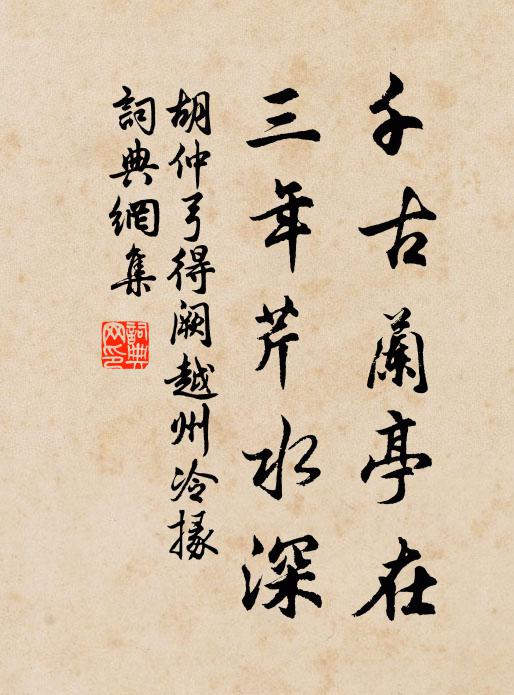 千古蘭亭在
三年芹水深
胡仲弓得阙越州冷掾
詞典網集
詞典網印